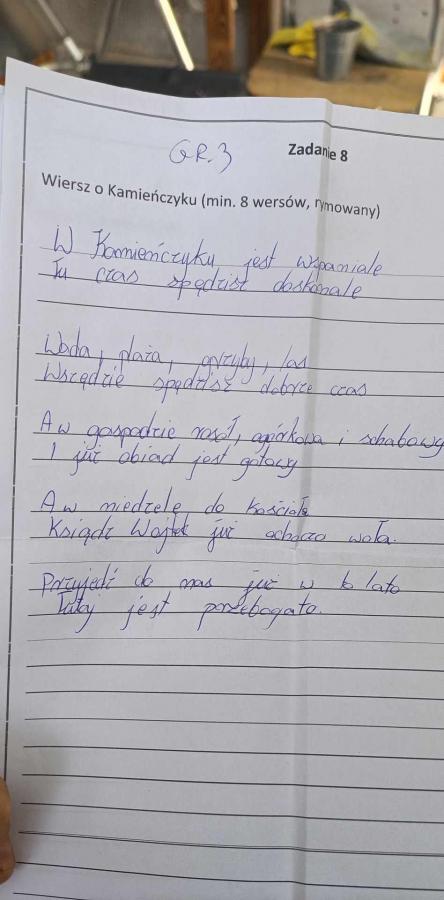 GR.3
Zadanie 8
Wiersz o Kamieńczyku (min. 8 wersów, rymowany)
W Kamieńczyku jest wspaniale
Tu czas spędzisz doskonale
Woda, plaża, grzyby, las
Wszędzie spędzisz dobrze czas
A w gospodzie rosół, ogórkowa i schabowy
I już obiad jest gotowy
A w niedzielę do kościoła
Ksiądz Wojtek już ochoczo woła.
Przyjedź do nas już w to lato
Tutaj jest przebogato.